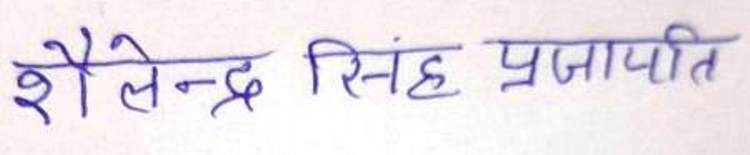 शैलेन्द्र सिंह प्रजापति